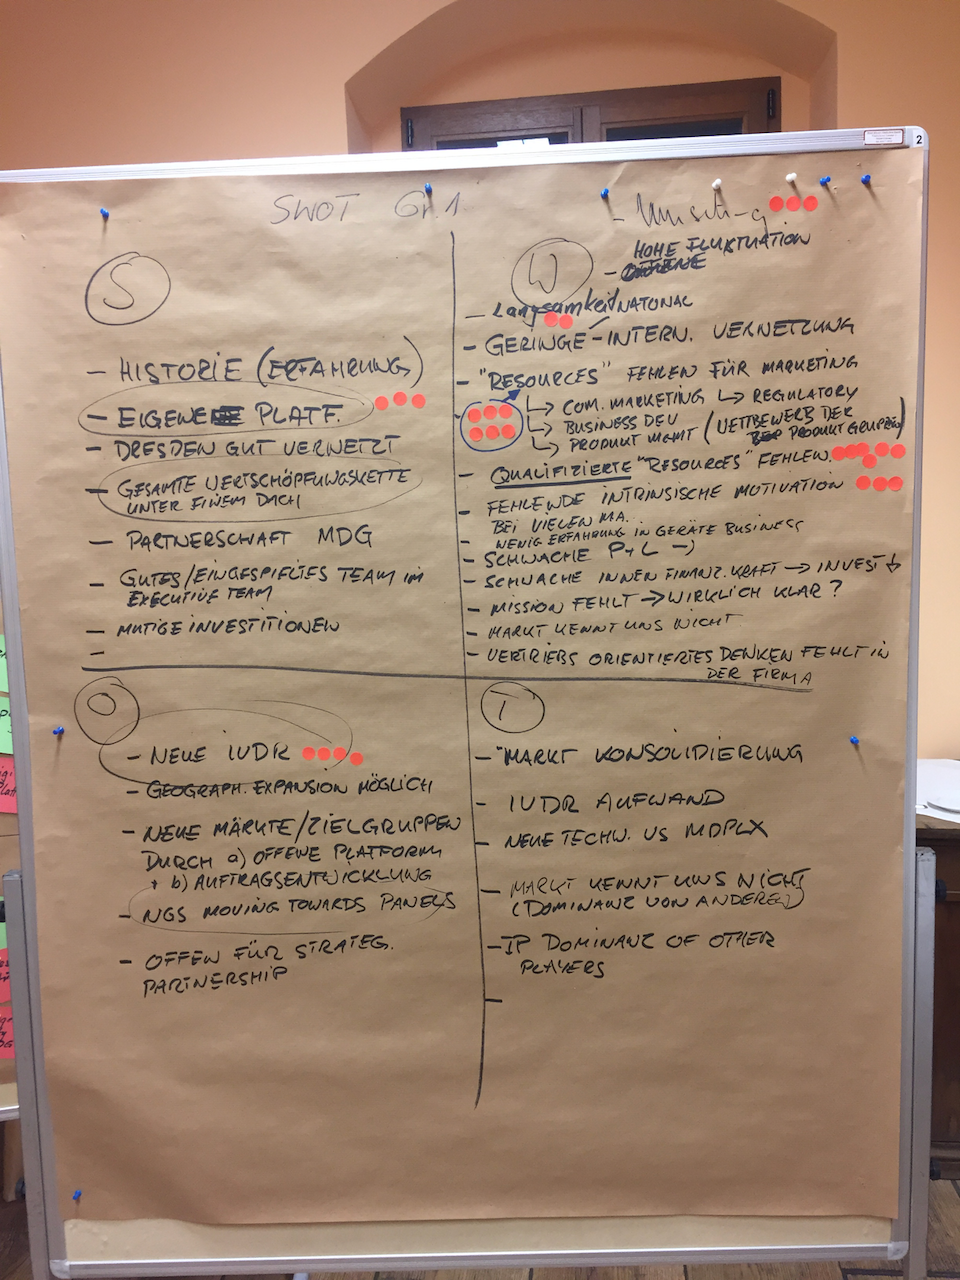 2
SWOT Gr 1
S
- HISTORIE (ERFAHRUNG)
- EIGENE PLATF.
- DRESDEN GUT VERNETZT
- GESAMTE WERTSCHÖPFUNGSKETTE
UNTER EINEM DACH
- PARTNERSCHAFT MDG
- GUTES/EINGESPIELTES TEAM IM
EXECUTIVE TEAM
- MUTIGE INVESTITIONEN
-
W
-
- HOHE FLUKTUATION
- Langsamkeit
- GERINGE NATONAL/INTERN. VERNETZUNG
- "RESOURCES" FEHLEN FÜR MARKETING
↳ COM. MARKETING ↳ REGULATORY
↳ BUSINESS DEV
↳ PRODUKT MGMT (WETTBEWERB DER
PRODUKTGRUPPEN)
- QUALIFIZIERTE "RESOURCES" FEHLEN.
- FEHLENDE INTRINSISCHE MOTIVATION
BEI VIELEN MA.
- WENIG ERFAHRUNG IN GERÄTE BUSINESS
- SCHWACHE P+L →
- SCHWACHE INNEN FINANZ.KRAFT → INVEST ↓
- MISSION FEHLT → WIRKLICH KLAR?
- MARKT KENNT UNS NICHT
- VERTRIEBS ORIENTIERTES DENKEN FEHLT IN
DER FIRMA
O
- NEUE IVDR
- GEOGRAPH. EXPANSION MÖGLICH
- NEUE MÄRKTE/ZIELGRUPPEN
DURCH a) OFFENE PLATFORM
+ b) AUFTRAGSENTWICKLUNG
- NGS MOVING TOWARDS PANELS
- OFFEN FÜR STRATEG.
PARTNERSHIP
T
- MARKT KONSOLIDIERUNG
- IVDR AUFWAND
- NEUE TECHN. VS MDPLX
- MARKT KENNT UNS NICHT
(DOMINANZ VON ANDEREN)
- IP DOMINANZ OF OTHER
PLAYERS
-